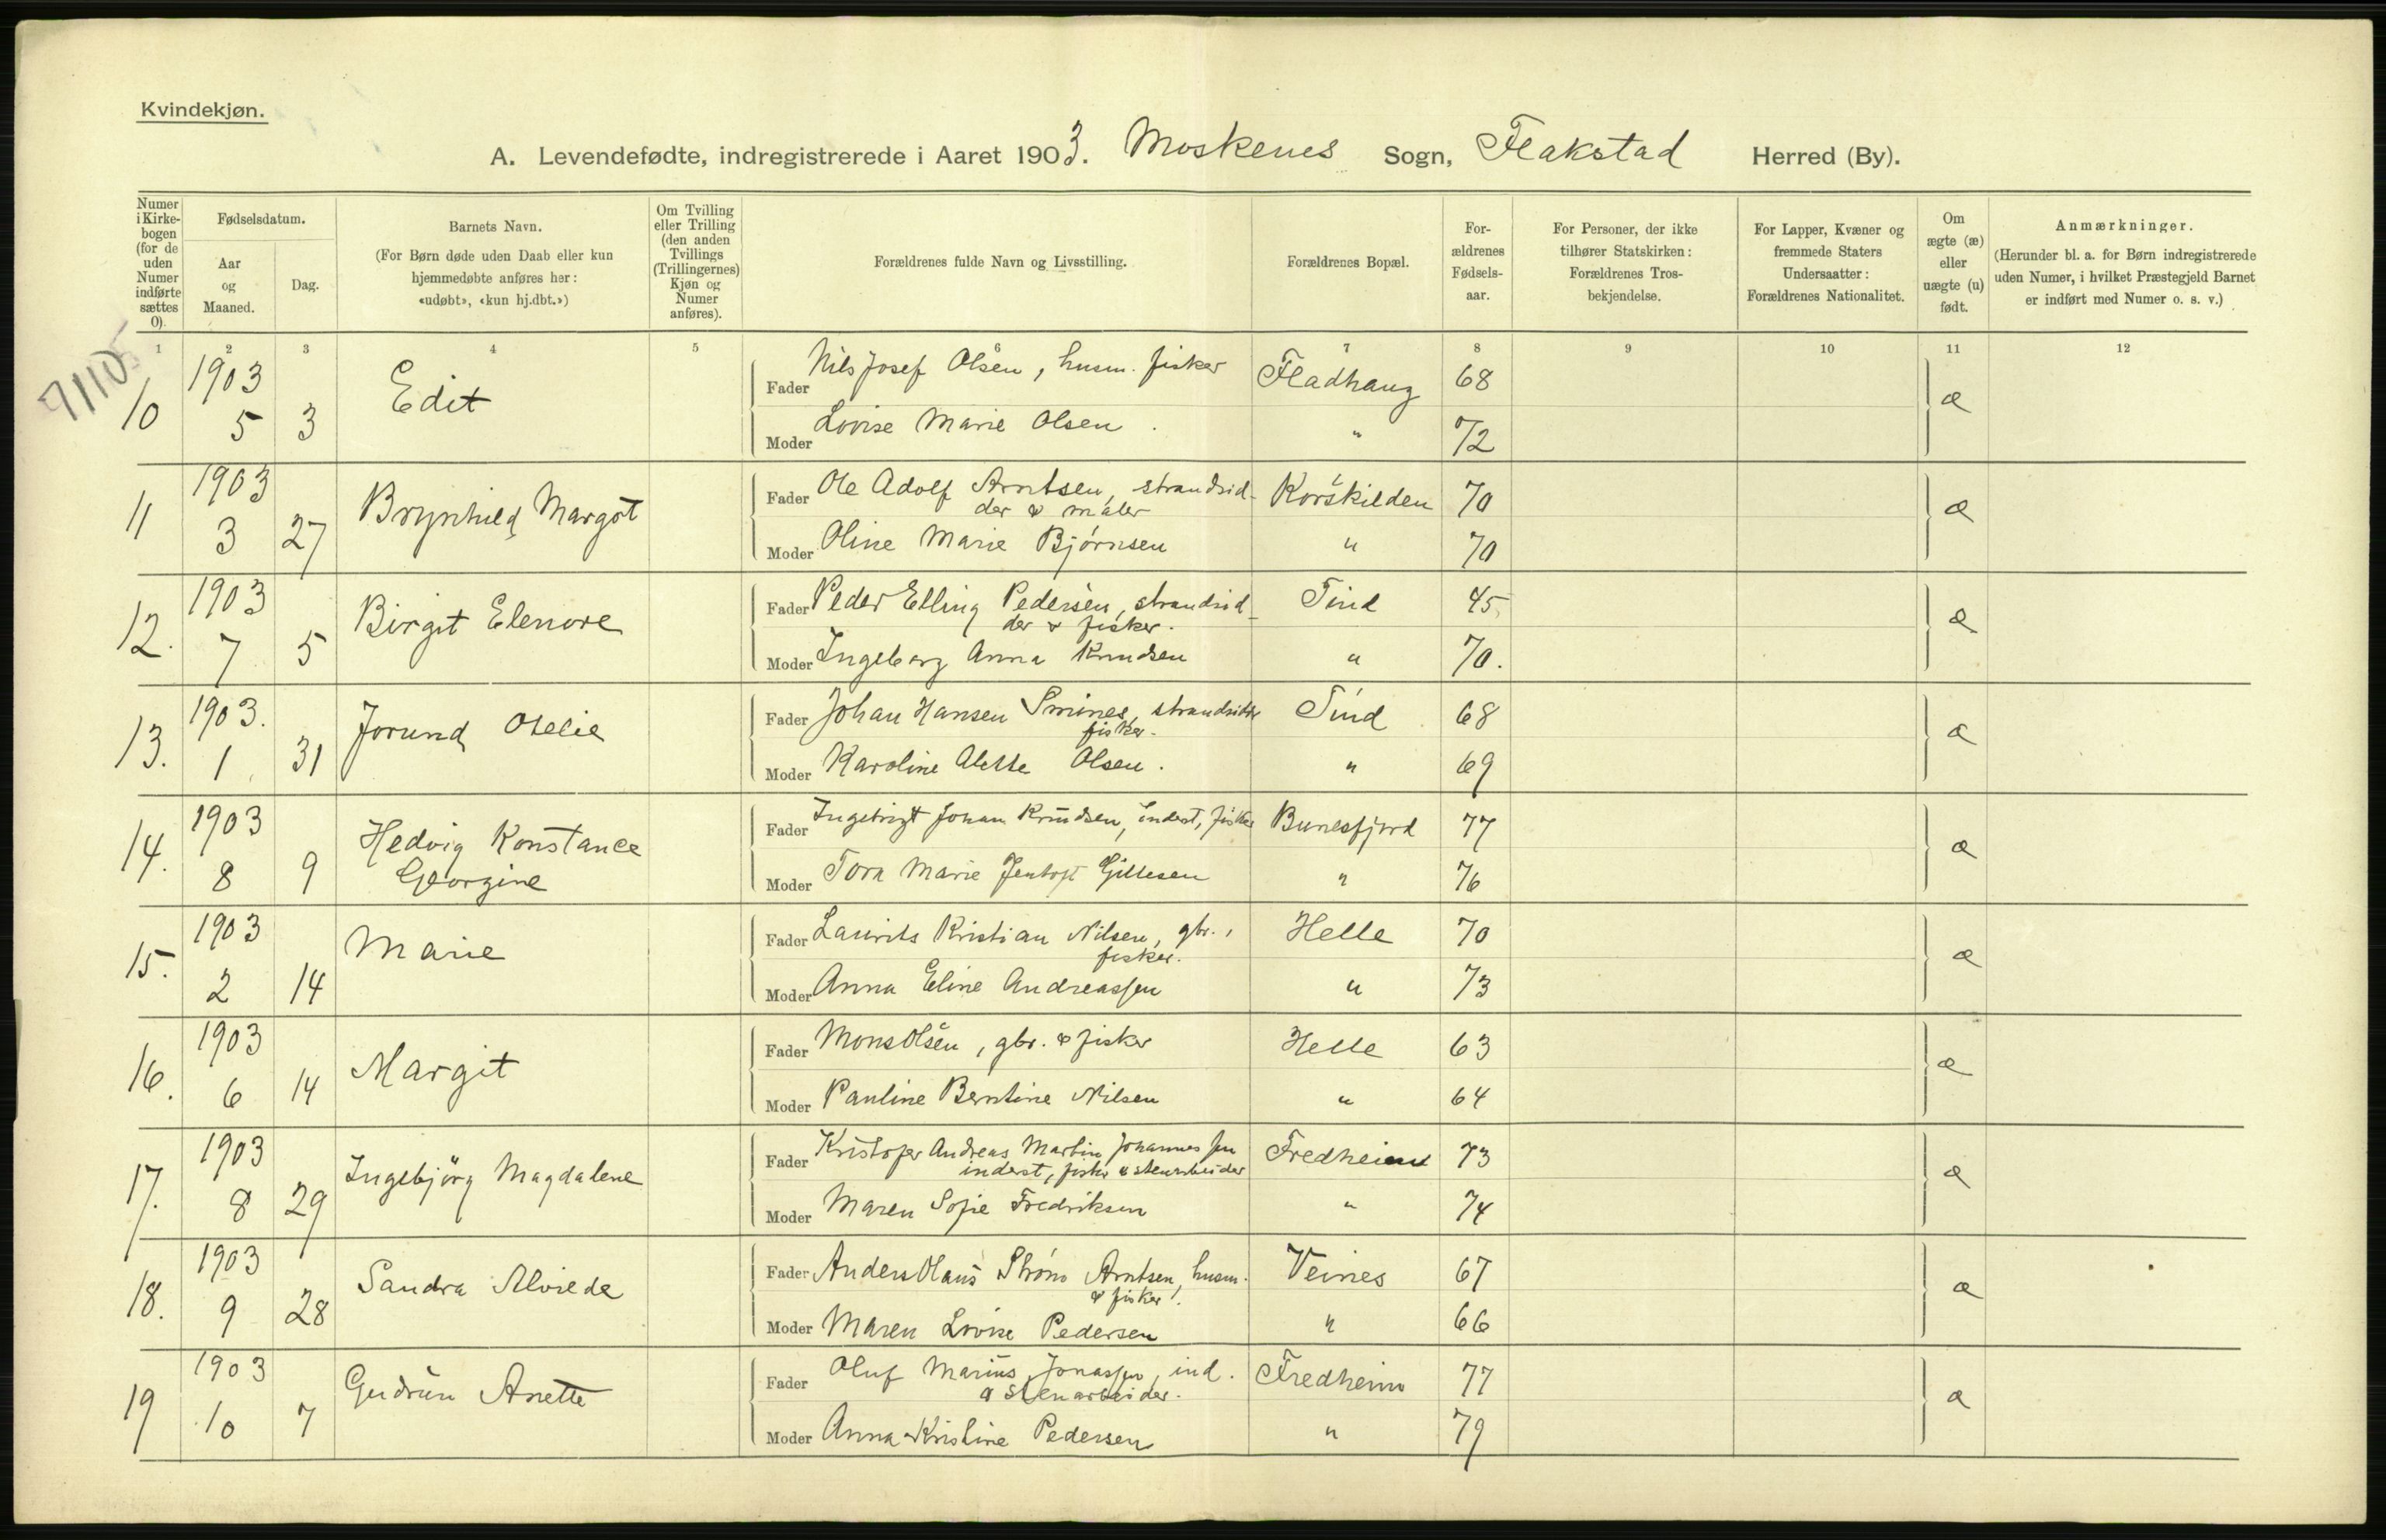 Kvindekjøn.
A. Levendefødte, indregistrerede i Aaret 1903. Moskenes Sogn, Flakstad Herred (By).
Numer i Kirkebogen (for de uden Numer indførte sættes 0).
Fødselsdatum.
Aar og Maaned.
Dag.
Barnets Navn.
(For Børn døde uden Daab eller kun hjemmedøbte anføres her: «udøbt», «kun hj.dbt.»)
Om Tvilling eller Trilling (den anden Tvillings (Trillingernes) Kjøn og Numer anføres).
Forældrenes fulde Navn og Livsstilling.
Forældrenes Bopæl.
Forældrenes Fødselsaar.
For Personer, der ikke tilhører Statskirken: Forældrenes Trosbekjendelse.
For Lapper, Kvæner og fremmede Staters Undersaatter: Forældrenes Nationalitet.
Om ægte (æ) eller uægte (u) født.
Anmærkninger.
(Herunder bl. a. for Børn indregistrerede uden Numer, i hvilket Præstegjeld Barnet er indført med Numer o. s. v.)
1 2 3 4 5 6 7 8 9 10 11 12
10 1903 5 3 Edit
Fader Nils Josef Olsen, husm. fisker Fladhaug 68 æ
Moder Lovise Marie Olsen. " 72
11 1903 3 27 Brynhild Margot
Fader Ole Adolf Arntsen, strandsid-
der & maler Korskilden 70 æ
Moder Oline Marie Bjørnsen " 70
12. 1903 7 5 Birgit Elenore
Fader Peder Elling Pedersen, strandsid-
der & fisker. Tind 45 æ
Moder Ingeborg Anna Knudsen " 70.
13. 1903. 1 31 Jorund Otelie
Fader Johan Hansen Smines, strandsidder
fisker. Tind 68 æ
Moder Karoline Alette Olsen. " 69
14. 1903 8 9 Hedvig Konstance
Georgine
Fader Ingebrigt Johan Knudsen, inderst, fisker Bunesfjord 77 æ
Moder Tora Marie Jentoft Gillesen " 76
15. 1903 2 14 Marie
Fader Laurits Kristian Nilsen, gbr.,
fisker. Helle 70 æ
Moder Anna Eline Andreassen " 73
16. 1903 6 14 Margit
Fader Mons Olsen, gbr. & fisker Helle 63 æ
Moder Pauline Berntine Nilsen " 64
17. 1903 8 29 Ingebjörg Magdalene
Fader Kristofer Andreas Martin Johannessen
inderst, fisker & stenarbeider Fredheim 73 æ
Moder Maren Sofie Fredriksen " 74
18. 1903 9 28 Sandra Alvilde
Fader Anders Olaus Strøm Arntsen, husm.
& fisker. Veines 67 æ
Moder Maren Lovise Pedersen " 66
19 1903 10 7 Gudrun Anette
Fader Oluf Marius Jonassen, ind.
& stenarbeider. Fredheim 77 æ
Moder Anna Kristine Pedersen " 79